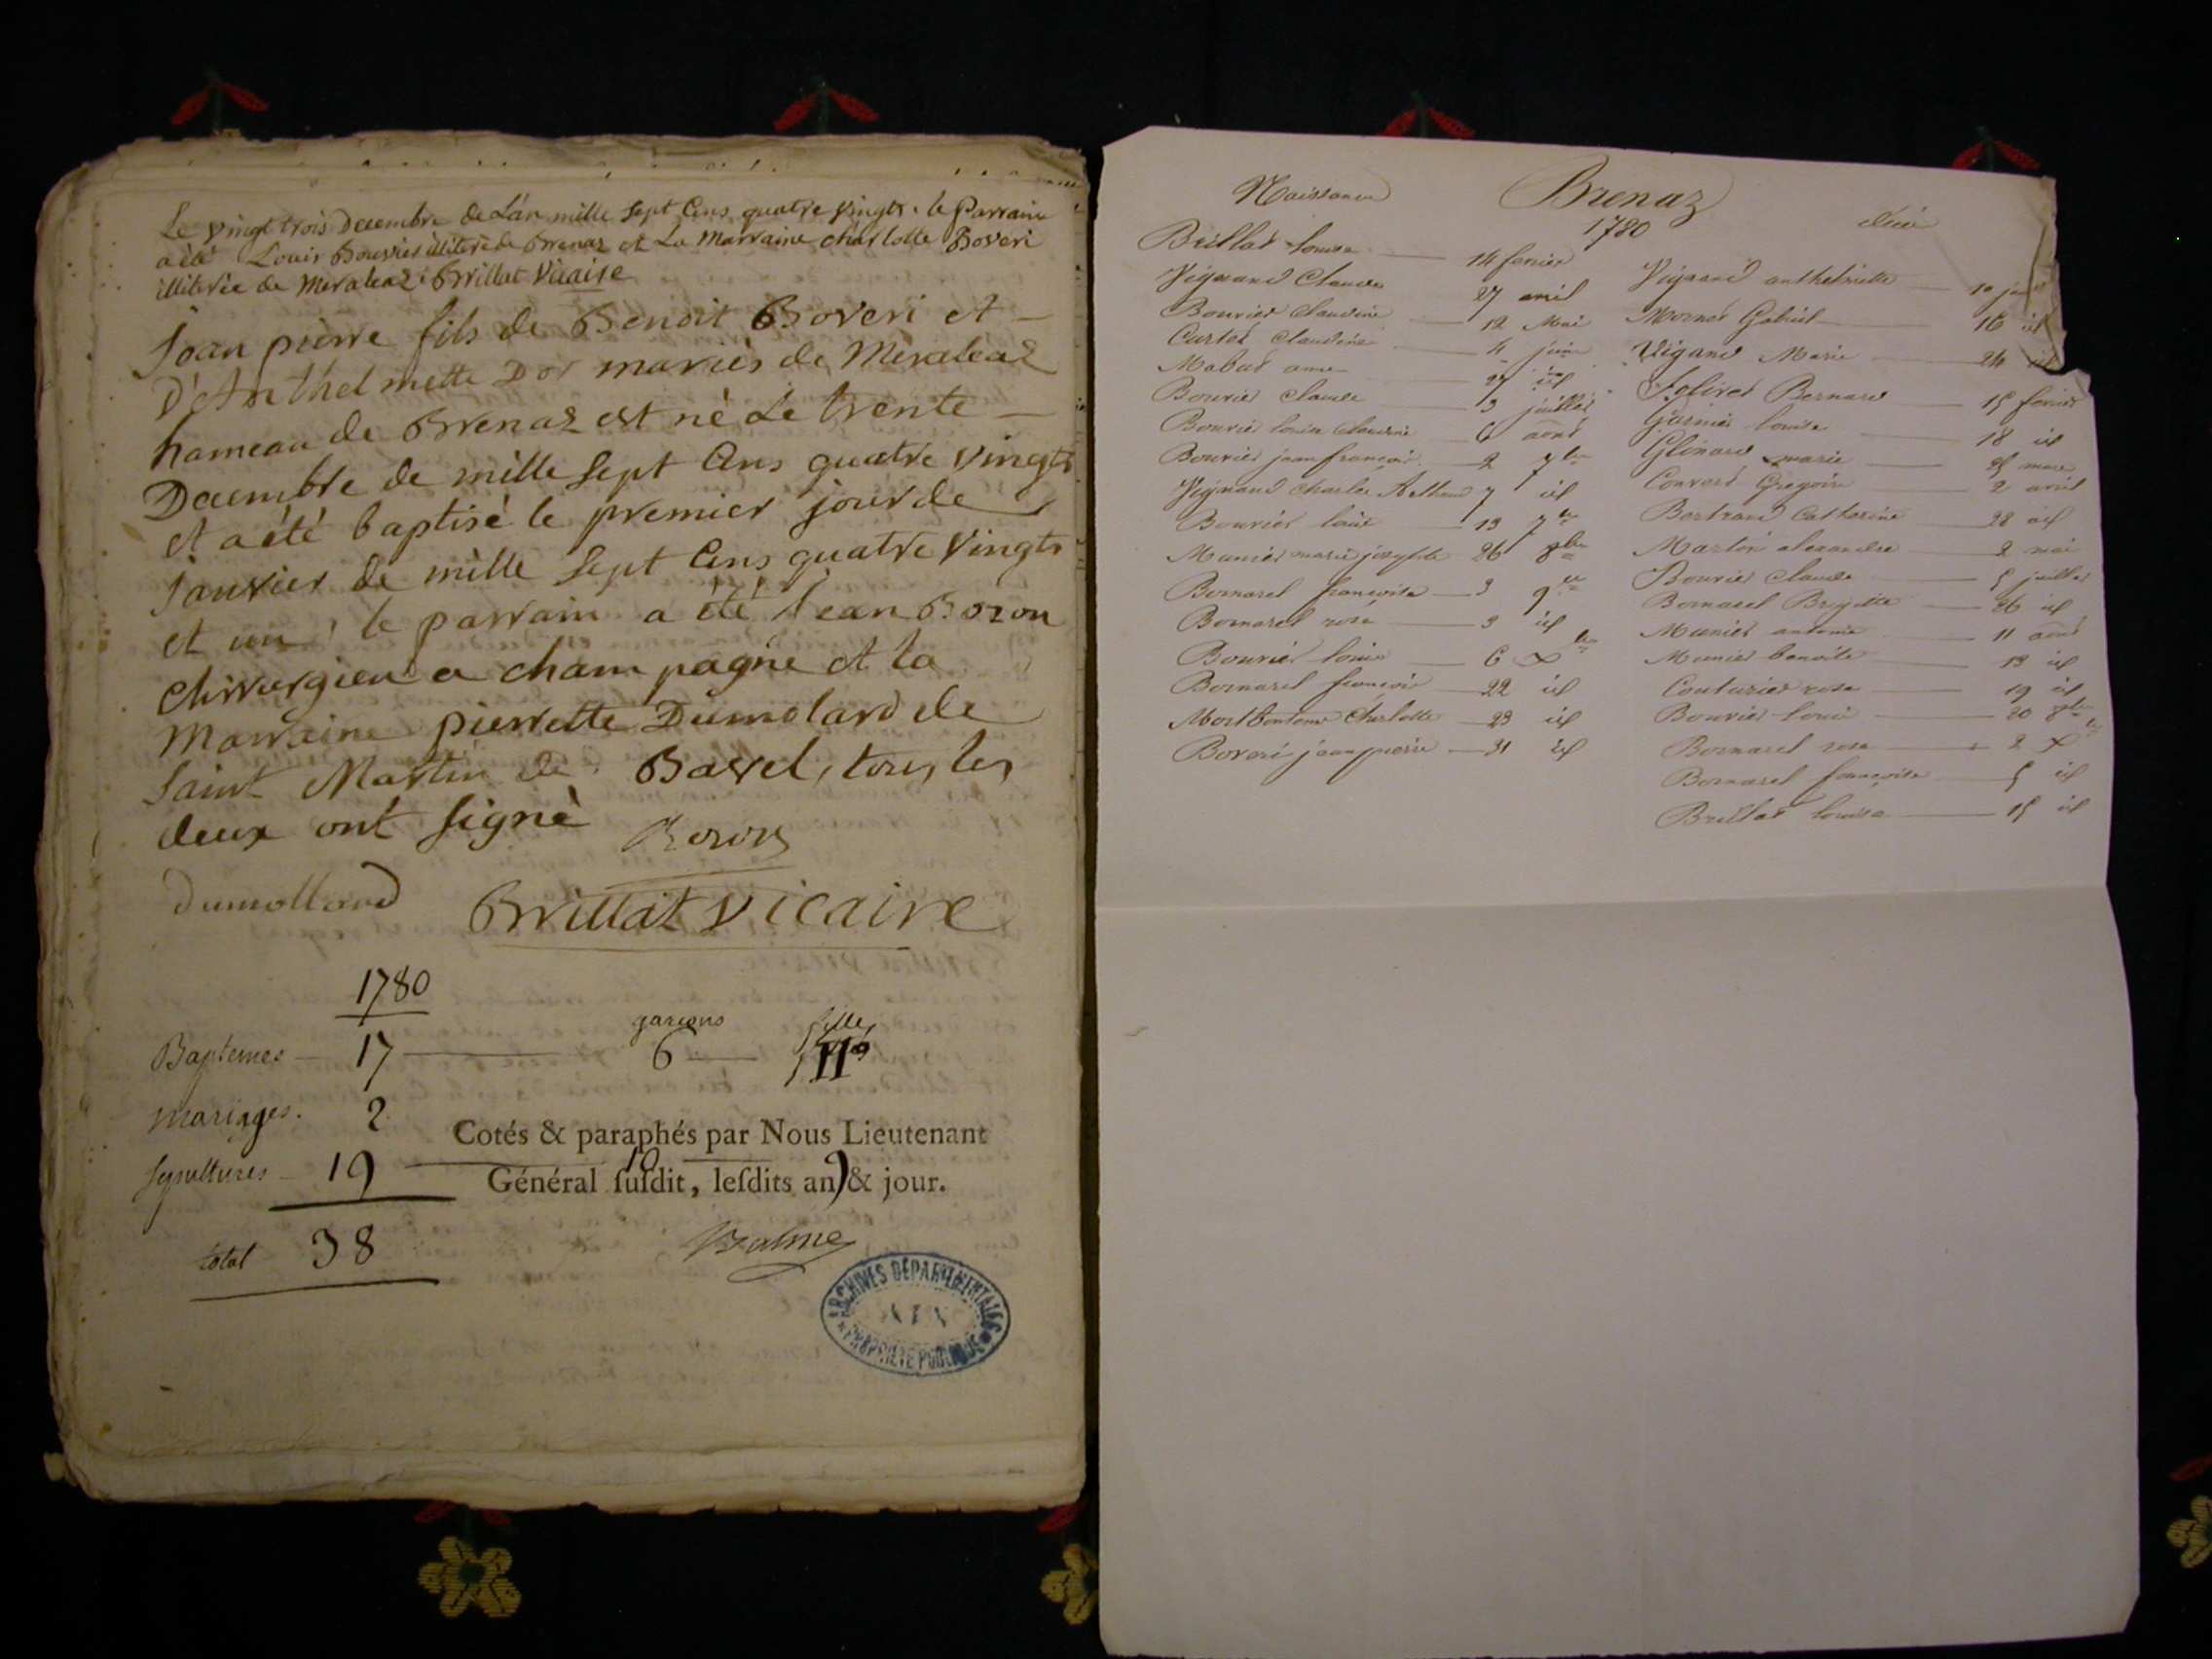 Le vingt trois Decembre de L'an mille sept Cens quatre vingts. le Parrain
a été Louis Bouvier illiterè de Brenaz et La Marraine charlotte Boveri
illiterèe de Meraleaz. Brillat Vicaire
Jean pierre fils de Benoit Boveri et
D'Anthelmette Dor mariés de Meraleaz
hameau de Brenaz est né Le trente
Decembre de mille sept Cens quatre vingts
et a été baptisé le premier jour de
Janvier de mille sept Cens quatre vingts
et un, le parrain a été Jean Bozon
chirurgien a champagne et la
Marraine pierrette Dumolard de
Saint Martin de Bavel, tous les
deux ont signè
Bozon
Dumollard
Brillat Vicaire
1780
garçons filles
Baptemes 17 6 11
mariages. 2
Cotés & paraphés par Nous Lieutenant
Sepultures 19 10 9
Général susdit, lesdits an & jour.
total 38
Balme
ARCHIVES DÉPARTEMENTALES
AIN
PROPRIÉTÉ PUBLIQUE
Naissance
Brenaz
1780
Décès
Brillat louise 14 fevrier
Vignand Claude 27 avril
Bouvier Claudine 12 Mai
Curtet Claudine 4 juin
Mabut anne 27 id
Bouvier Claude 3 juillet
Bouvier louise Claudine 6 aout
Bouvier jean françois 2 7bre
Vignand Charles 7 id
Bouvier louis 13 7bre
Munier marie josephte 26 8bre
Bornarel françoise 3 9bre
Bornarel rose 3 id
Bouvier louis 6 Xbre
Bornarel françois 22 id
Montbontems Charlotte 23 id
Boveri jean pierre 31 id
Vignand anthelmette 10
Mornet Gabriel 16 id
Vignand Marie 24 id
Jolivet Bernard 15 fevrier
Garnier louise 18 id
marie mars
Convert Gregoire 2 avril
Bertrand Catherine 28 id
Martin alexandre 2 mai
Bouvier Claude 5 juillet
Bornarel Brigitte 26 id
Munier antoine 11 aout
Munier benoite 13 id
Couturier rose 19 id
Bouvier louis 20 8bre
Bornarel rose 2 Xbre
Bornarel françoise 5 id
Brillat louise 15 id